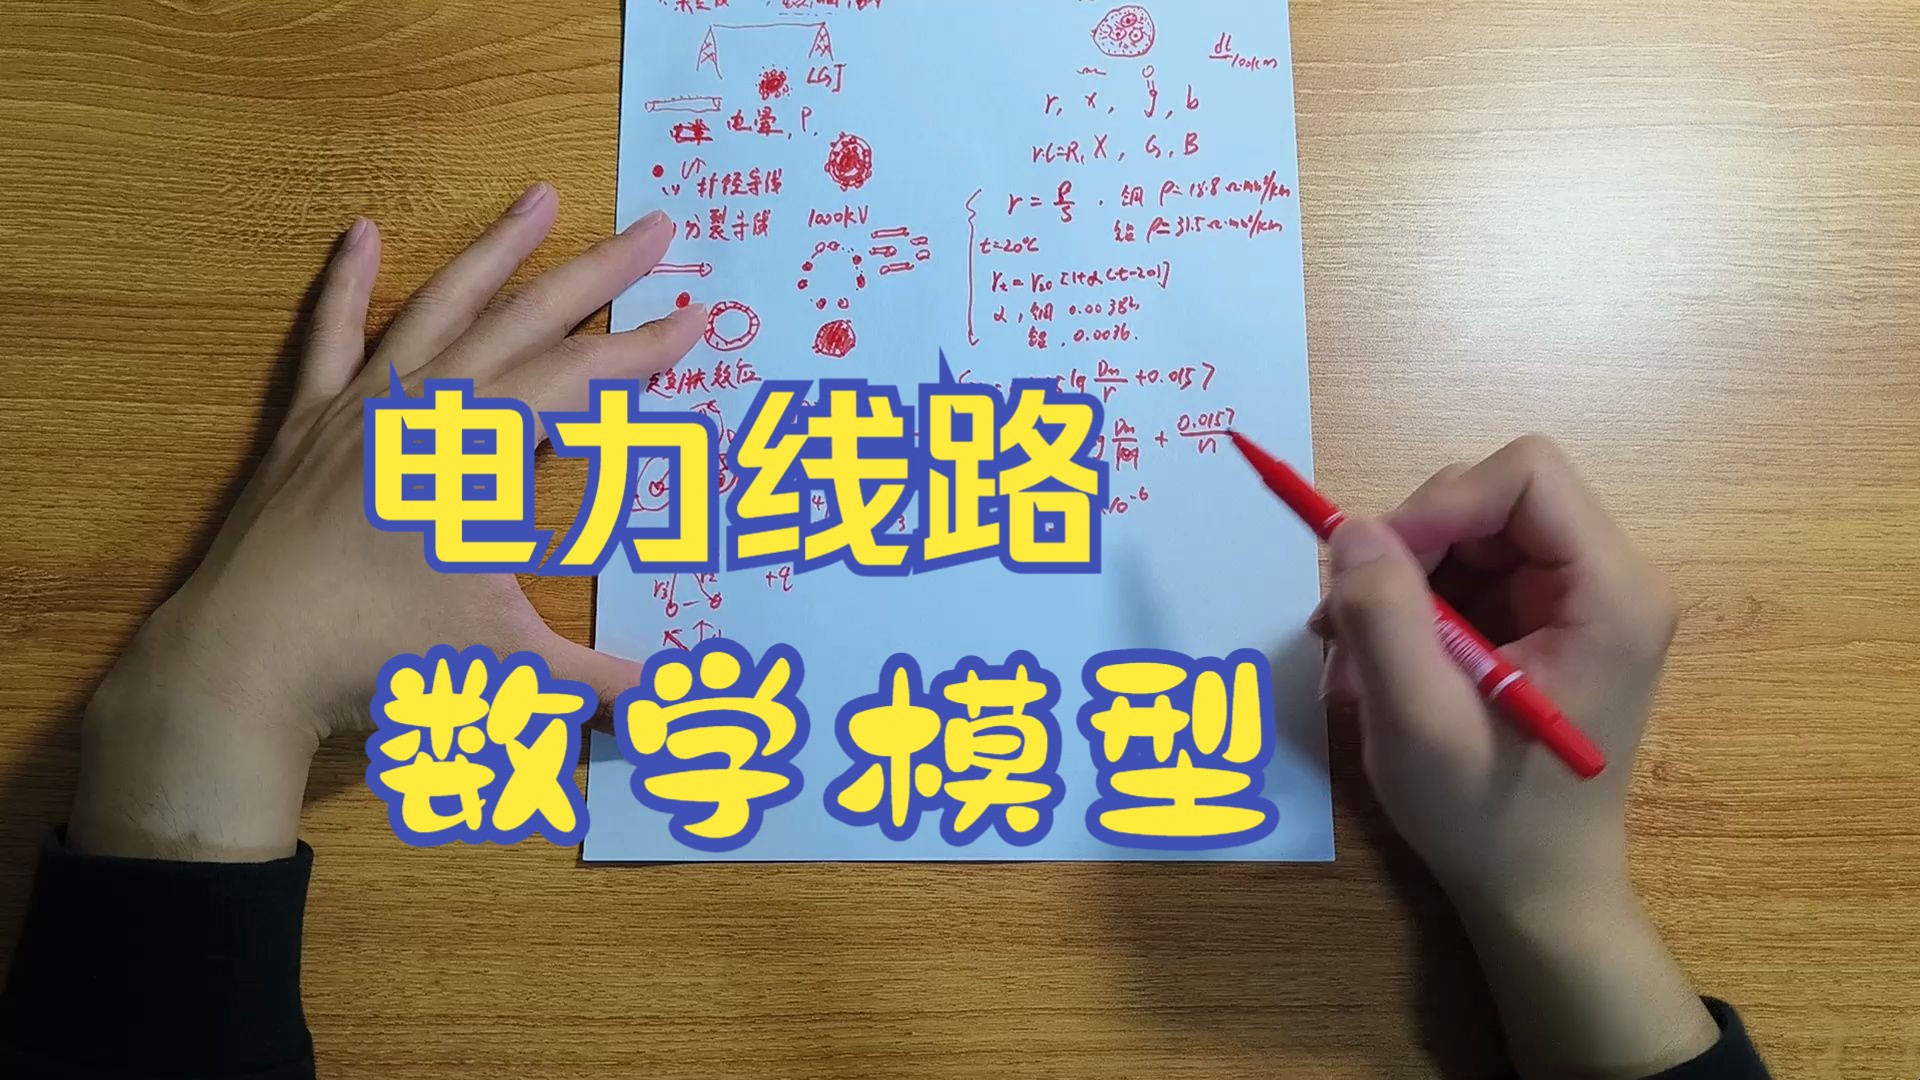 LGJ
电晕, P.
扩径导线
分裂导线 1000kV
集肤效应
+q
dl/100km
r, x, g, b
rl=R, X, G, B
r = ρ/S . 铜 ρ=18.8 Ω·mm²/km
铝 ρ=31.5 Ω·mm²/km
t=20℃
rt = r20 [1+α(t-20)]
α, 铜 0.00382
铝, 0.0036.
lg Dm/r +0.0157
Dm/req + 0.0157/n
10⁻⁶
电力线路
数学模型